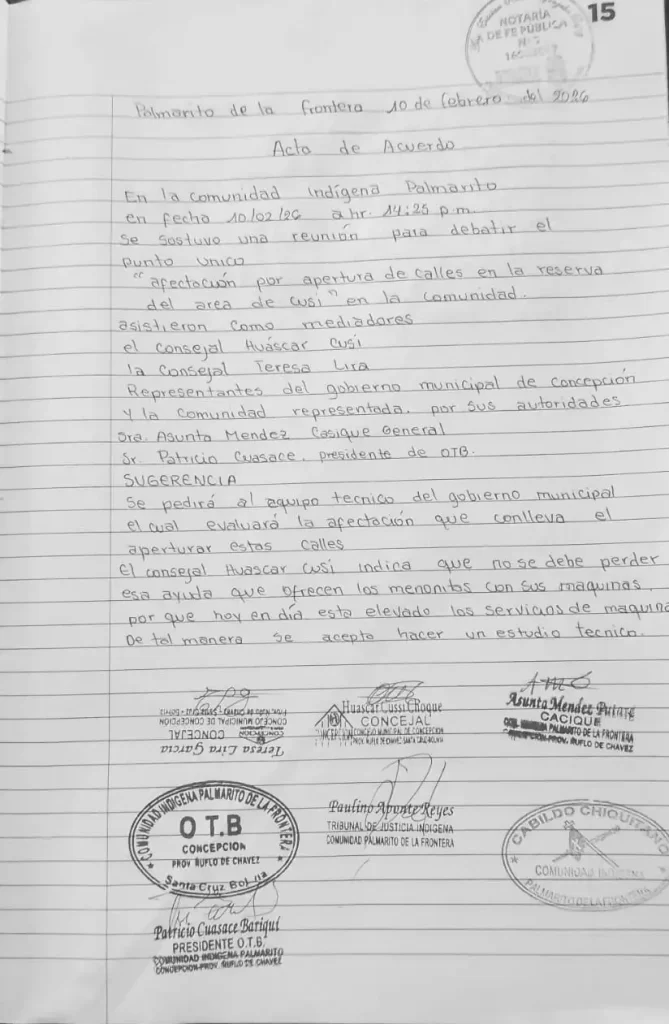 15
NOTARÍA
DE FE PÚBLICA
Palmarito de la frontera 10 de febrero del 2026
Acta de Acuerdo
En la comunidad Indígena Palmarito
en fecha 10/02/26 a hr. 14:25 p.m.
Se sostuvo una reunión para debatir el
punto unico
"afectación por apertura de calles en la reserva
del area de cusi" en la comunidad.
asistieron como mediadores
el consejal Huáscar Cusi
la consejal Teresa Lira
Representantes del gobierno municipal de Concepción
y la comunidad representada. por sus autoridades
Sra. Asunta Mendez Casique General
Sr. Patricio Cuasace. presidente de OTB.
SUGERENCIA
Se pedirá al equipo tecnico del gobierno municipal
el cual evaluará la afectación que conlleva el
aperturar estas calles
El consejal Huascar Cusi indica que no se debe perder
esa ayuda que ofrecen los menonitos con sus maquinas,
por que hoy en día esta elevado los servicios de maquina
De tal manera se acepta hacer un estudio tecnico.
Teresa Lira Garcia
CONCEJAL
CONCEJO MUNICIPAL DE CONCEPCIÓN
Huascar Cussi Choque
CONCEJAL
CONCEJO MUNICIPAL DE CONCEPCION
PROV. ÑUFLO DE CHAVEZ SANTA CRUZ-BOLIVIA
Asunta Mendez
CACIQUE
PALMARITO DE LA FRONTERA
CONCEPCION-PROV. ÑUFLO DE CHAVEZ
COMUNIDAD INDIGENA PALMARITO DE LA FRONTERA
O.T.B
CONCEPCION
PROV ÑUFLO DE CHAVEZ
Santa Cruz Bolivia
Paulino Aponte Reyes
TRIBUNAL DE JUSTICIA INDIGENA
COMUNIDAD PALMARITO DE LA FRONTERA
CABILDO CHIQUITANO
COMUNIDAD INDIGENA
PALMARITO DE LA FRONTERA
Patricio Cuasace Bariqui
PRESIDENTE O.T.B.
COMUNIDAD INDIGENA PALMARITO
CONCEPCION-PROV. ÑUFLO DE CHAVEZ